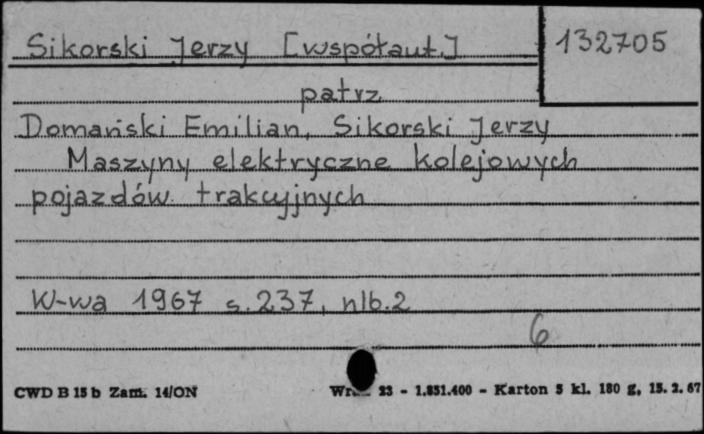 Sikorski Jerzy [współaut.]
132705
patrz
Domański Emilian, Sikorski Jerzy
Maszyny elektryczne kolejowych
pojazdów trakcyjnych
W-wa 1967 s. 237, nlb. 2
6
CWD B 15 b Zam. 14/ON
23 - 1.851.400 - Karton 5 kl. 180 g, 15. 2. 67